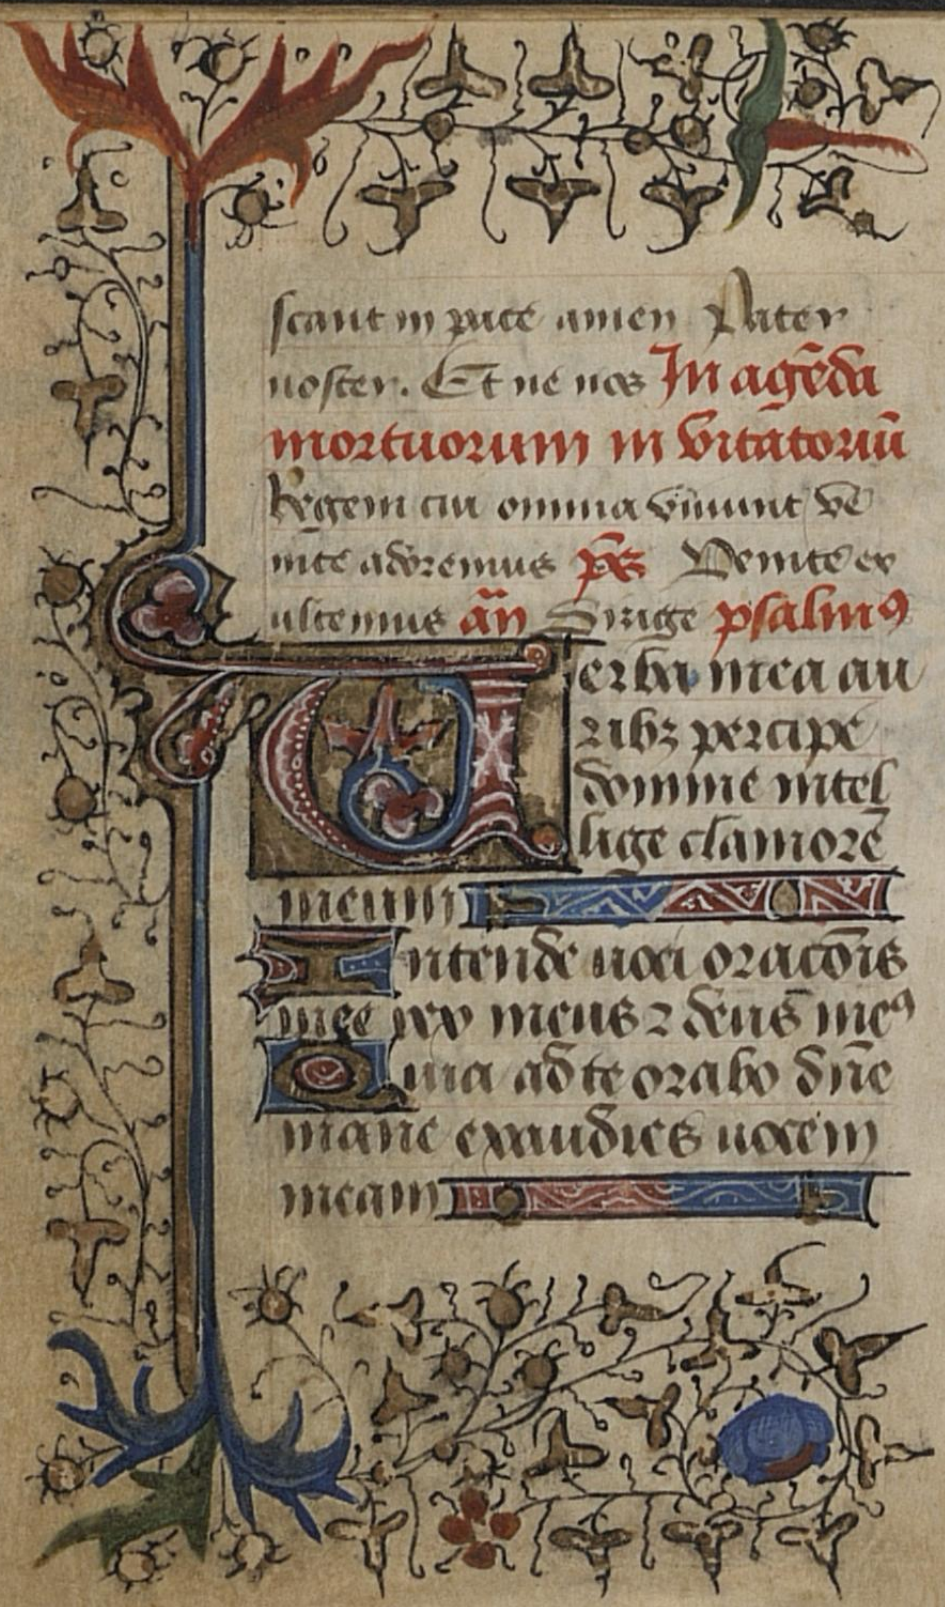 scant in pace amen Pater
noster. Et ne nos In agēda
mortuorum in vitatoriū
Regem cui omnia viuunt ve
nite adoremus p̄s Venite ex
ultemus an̄ Dirige psalmꝯ
Uerba mea au
ribꝫ percipe
domine intel
lige clamorē
meum
Intende uoci oracōis
mee rex meus ⁊ deus meꝰ
Quia ad te orabo dn̄e
mane exaudies uocem
meam